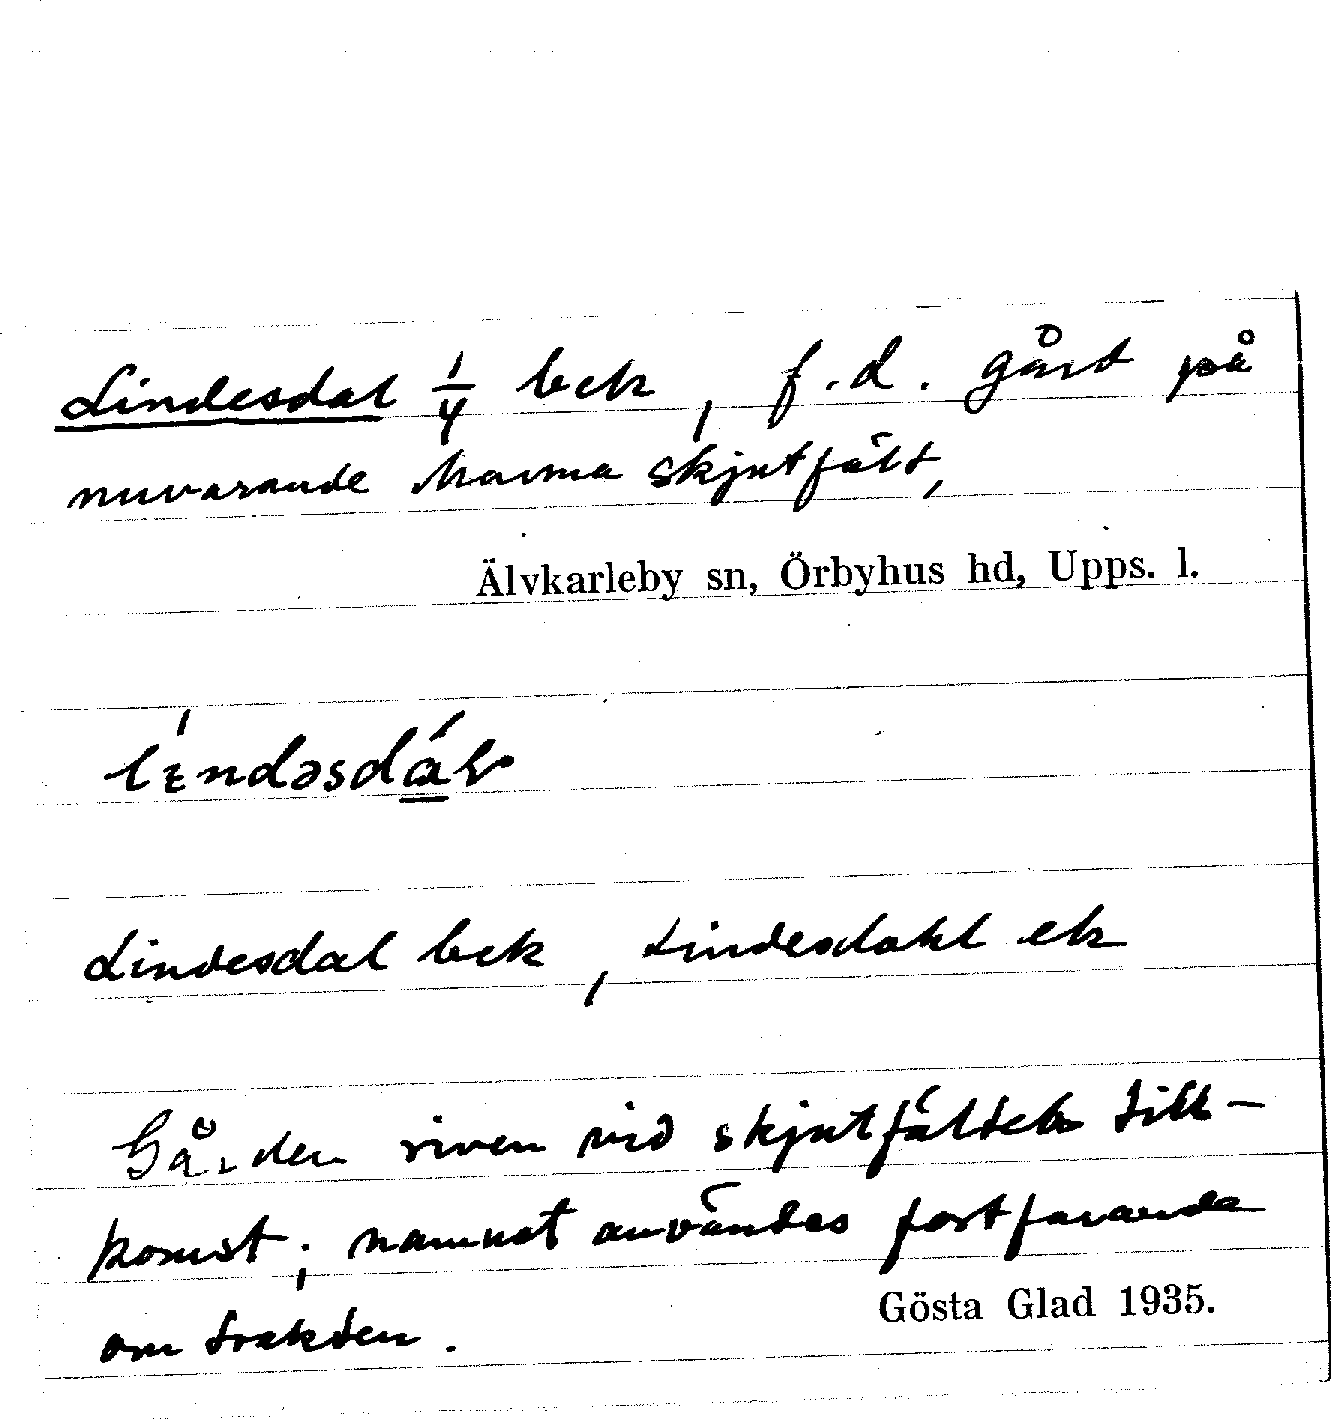 Lindesdal 1/4 bek, f.d. gård på
nuvarande Marma skjutfält,
Älvkarleby sn, Örbyhus hd, Upps. l.
Lindesdal bek, Lindesdahl ek
Gården riven vid skjutfältets till-
komst; namnet användes fortfarande
om trakten.
Gösta Glad 1935.